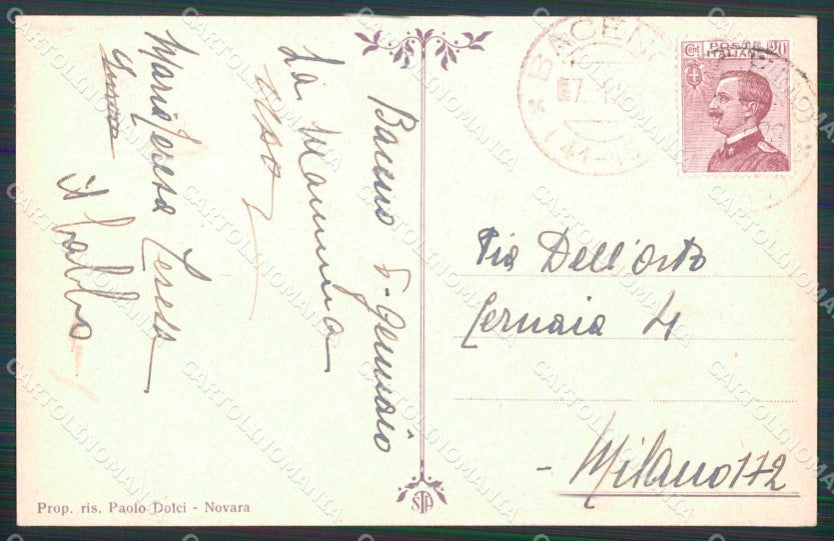 Baceno 5-Gennaio
La Mamma
Maria Teresa Teresa
il babbo
BACENO
POSTE
ITALIANE
Cent. 20
Pia Dell'Orto
Cernaia 4
- Milano 112
STA
Prop. ris. Paolo Dolci - Novara
CARTOLINOMANIA